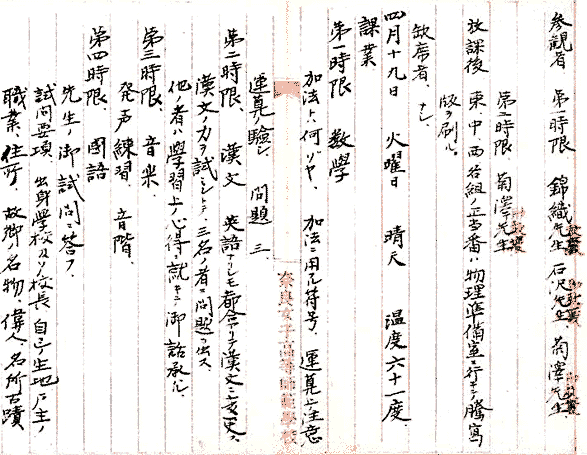 参観者 第一時限 錦織先生 石沢先生 菊澤先生
第二時限 菊澤先生
放課後 東、中、西各組ノ正当番ハ物理準備室ニ行キテ謄寫
版ヲ刷ル。
欠席者、ナシ、
四月十九日 火曜日 晴天 温度六十一度
課業
第一時限 数學
加法トハ何ゾヤ、 加法ニ用フル符号、 運算上ノ注意
運算ノ驗シ 問題 三、
第二時限、漢文 英語ナリシモ都合アリテ漢文ニ変更ス
漢文ノ力ヲ試ミントテ、三名ノ者ニ問題ヲ出ス
他ノ者ハ學習上ノ心得ニ就キテ御話承ル、
第三時限、音楽、
発声練習、音階、
第四時限、國語
先生ノ御試問ニ答フ、
試問要項 出身學校及ソノ校長 自分ノ生地 戸主ノ
職業、住所、故郷ノ名物、偉人、名所古蹟
奈良女子高等師範學校